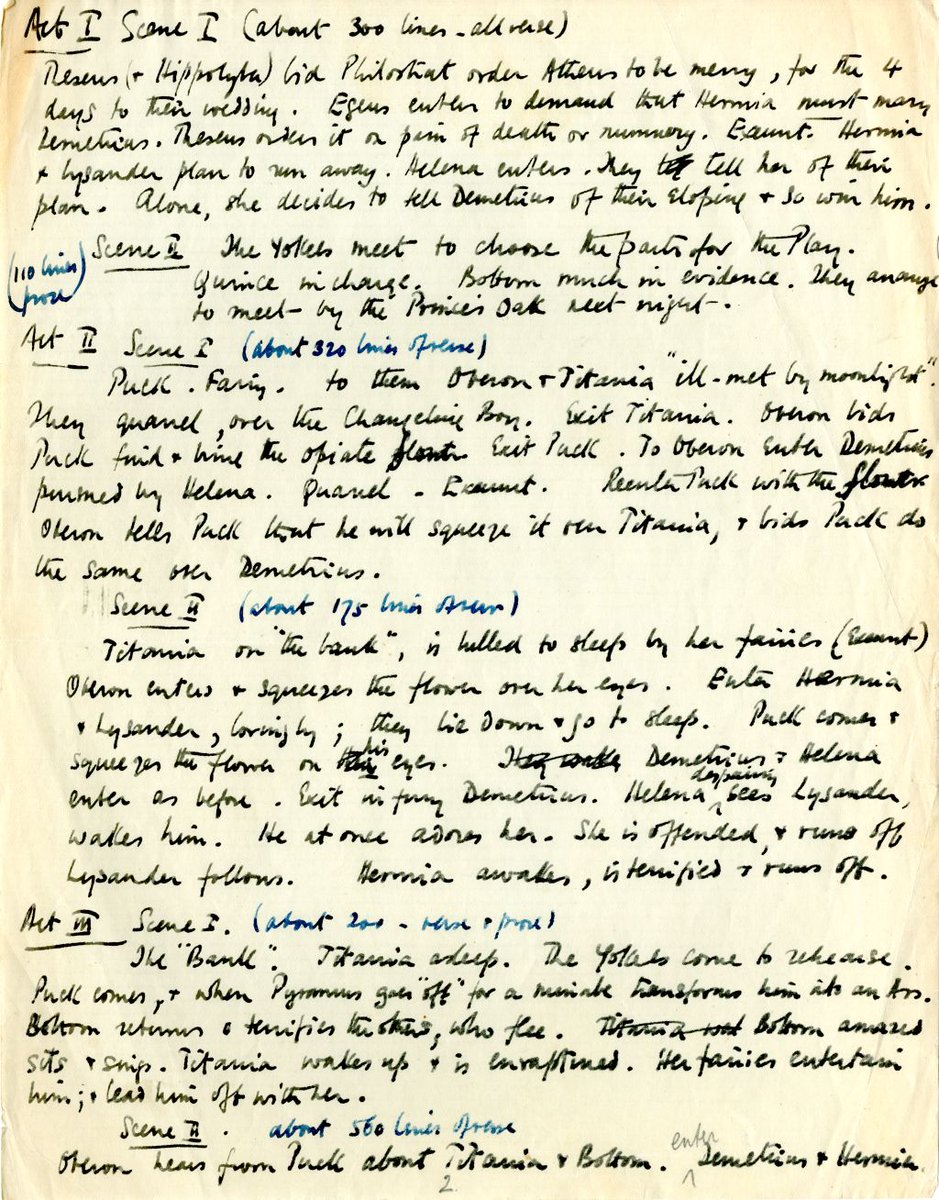 Act I Scene I (about 300 lines - all verse)
Theseus (+ Hippolyta) bid Philostrat order Athens to be merry, for the 4
days to their wedding. Egeus enters to demand that Hermia must marry
Demetrius. Theseus orders it on pain of death or nunnery. Exeunt. Hermia
+ Lysander plan to run away. Helena enters. They tell her of their
plan. Alone, she decides to tell Demetrius of their Eloping + so win him.
Scene II The Yokels meet to choose the parts for the Play.
(110 lines prose)
Quince in charge. Bottom much in evidence. They arrange
to meet by the Prince's Oak next night.
Act II Scene I (about 320 lines of verse)
Puck. Fairy. to them Oberon + Titania "ill-met by moonlight".
They quarrel, over the Changeling Boy. Exit Titania. Oberon bids
Puck find + bring the opiate flower Exit Puck. To Oberon Enter Demetrius
pursued by Helena. Quarrel - Exeunt. Reenter Puck with the flower
Oberon tells Puck that he will squeeze it over Titania, + bids Puck do
the same over Demetrius.
Scene II (about 175 lines of verse)
Titania on "the bank", is lulled to sleep by her fairies (Exeunt)
Oberon enters + squeezes the flower over her eyes. Enter Hermia
+ Lysander, lovingly; they lie down + go to sleep. Puck comes +
squeezes the flower on their his eyes. They wake Demetrius + Helena
enter as before. Exit in fury Demetrius. Helena despairing sees Lysander,
wakes him. He at once adores her. She is offended, + runs off
Lysander follows. Hermia awakes, is terrified + runs off.
Act III Scene I. (about 200 - verse + prose)
The "Bank". Titania asleep. The Yokels come to rehearse.
Puck comes, + when Pyramus goes "off" for a minute transforms him into an Ass.
Bottom returns + terrifies the others, who flee. Titania Bottom amazed
sits + sings. Titania wakes up + is enraptured. Her fairies entertain
him; + lead him off with her.
Scene II. about 560 lines of verse
Oberon hears from Puck about Titania + Bottom. enter Demetrius + Hermia.
2